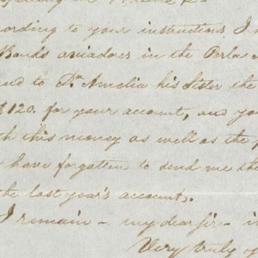 ccording to your instructions I
Banks aviadores in the Perla
and to Dn Amelia his Sister the
$120. for your account, and yo
th this money as well as the p
have forgotten to send me the
the last year's accounts.
I remain - my dear sir - i
Very truly y